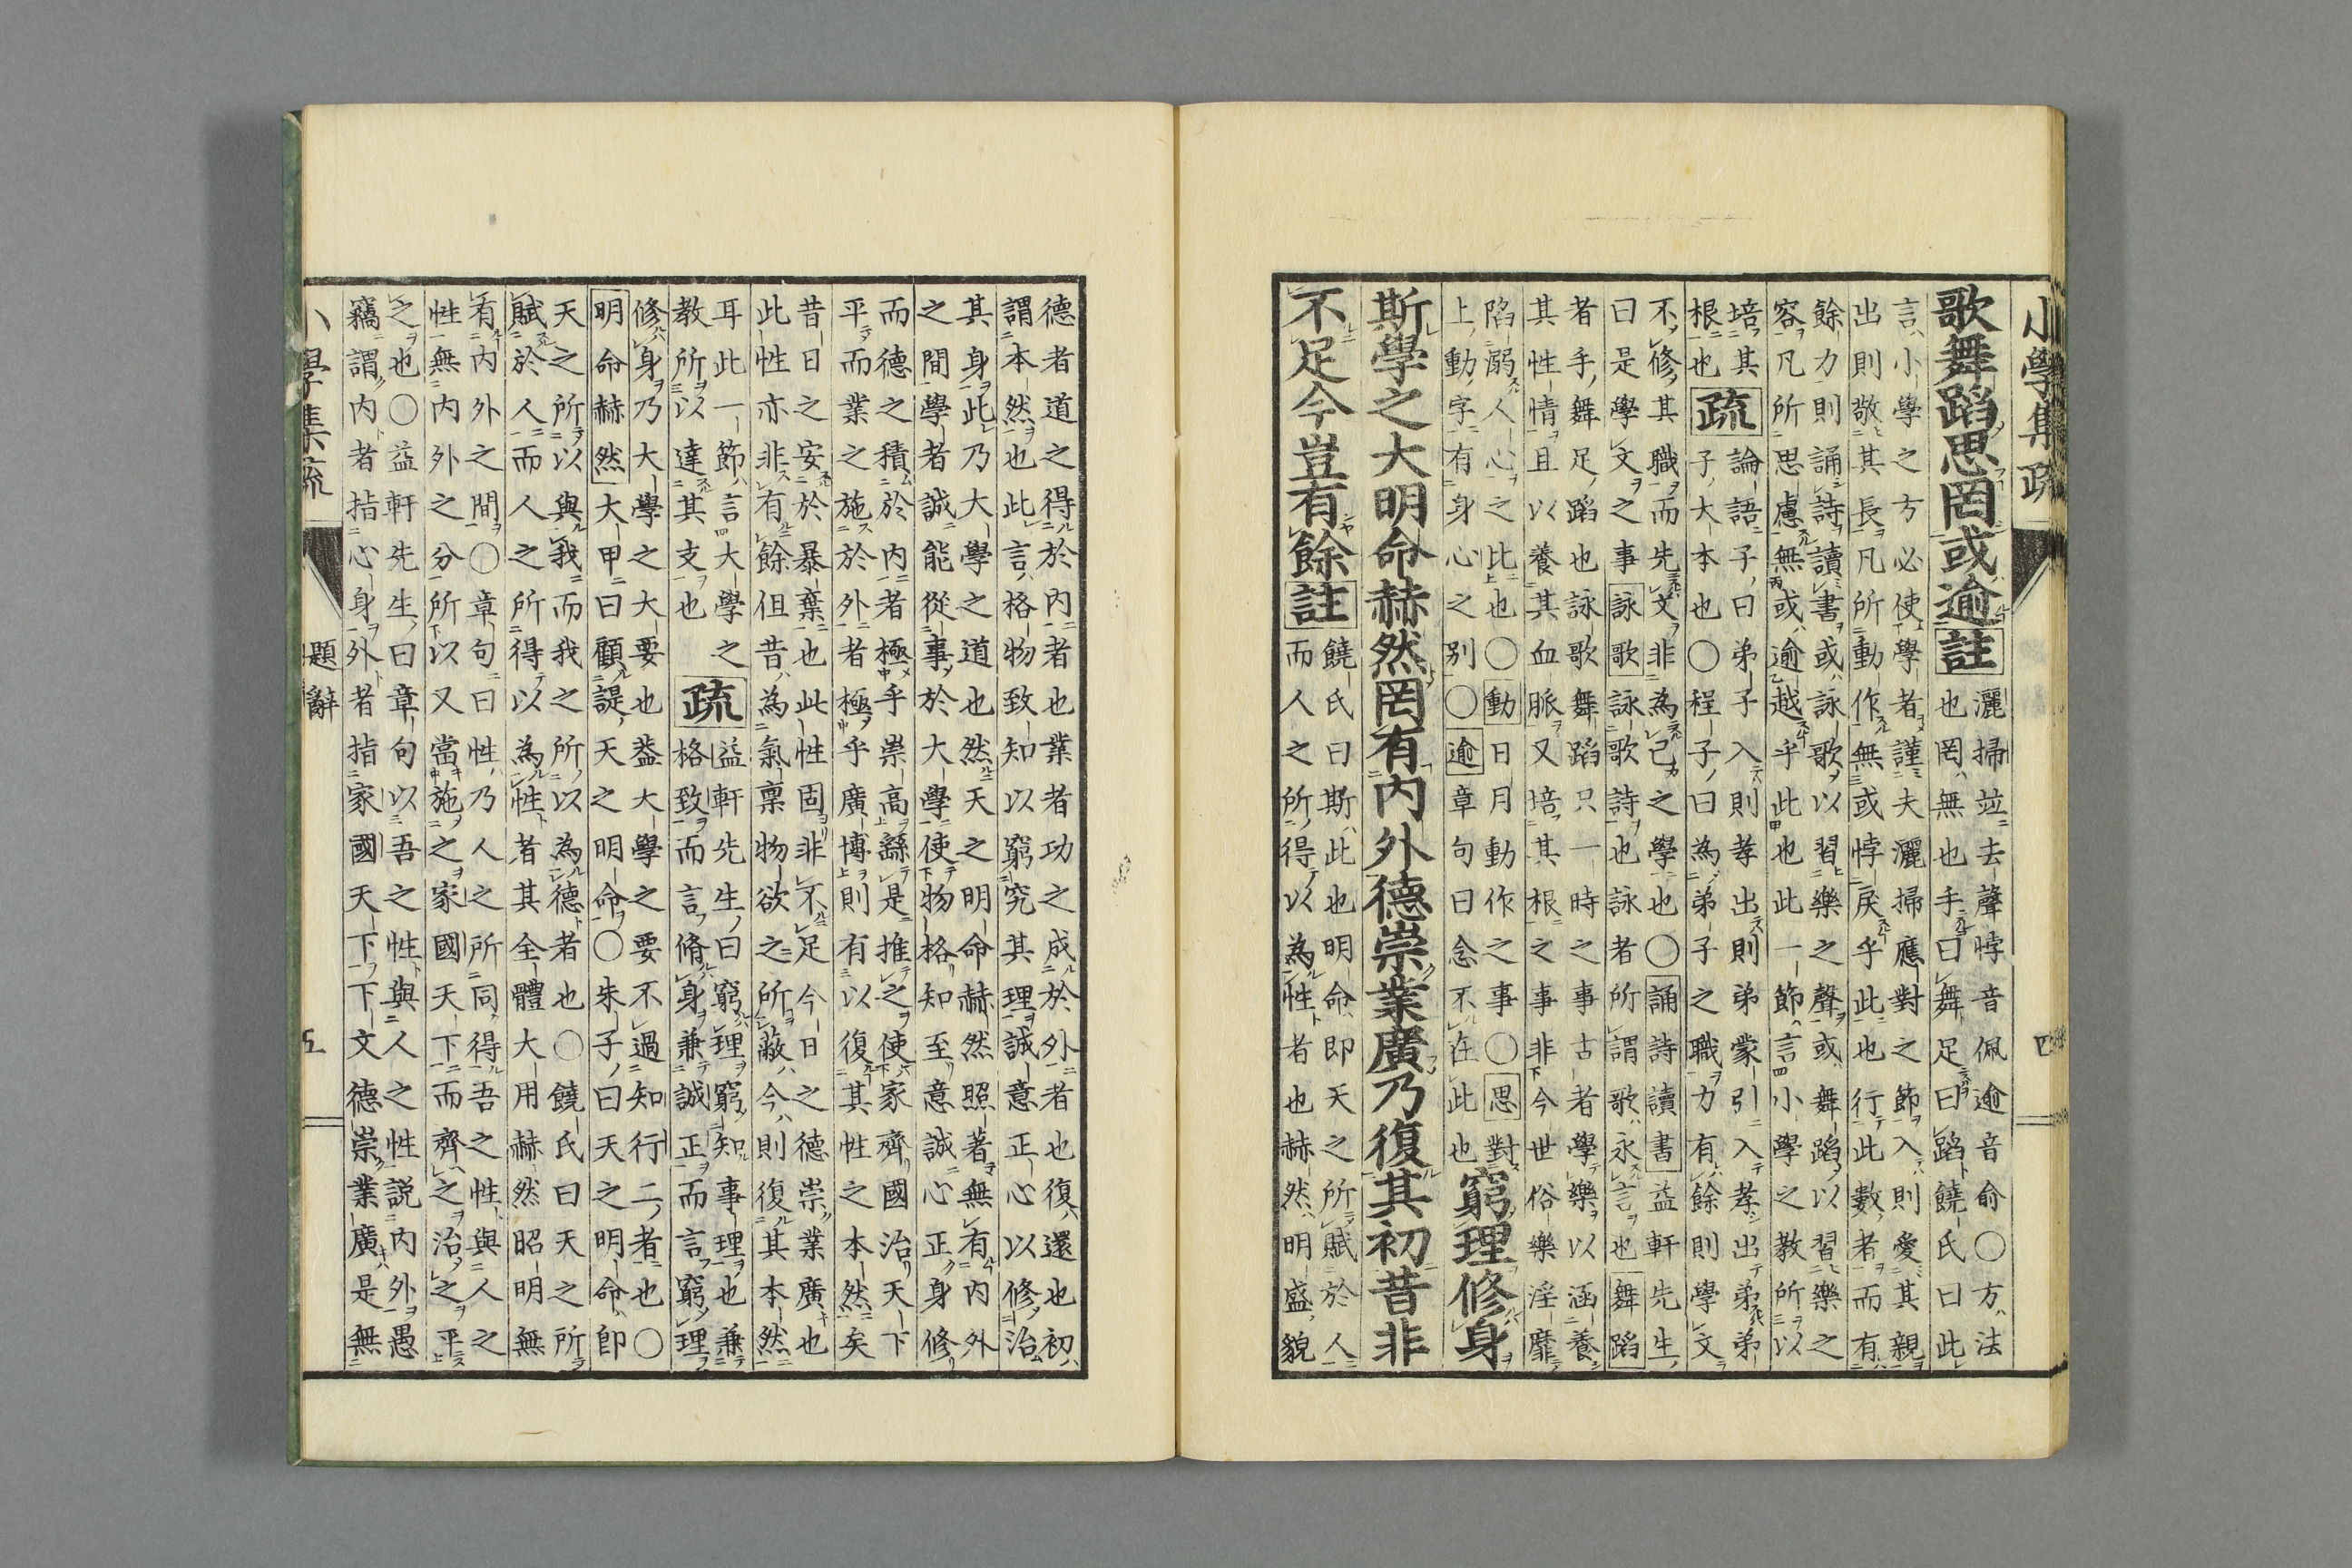 小學集疏
四
歌舞蹈思罔或逾註
灑掃竝去聲悖音佩逾音俞〇方法
也罔無也手曰舞足曰蹈饒氏曰此
言小學之方必使學者謹夫灑掃應對之節入則愛其親
出則敬其長凡所動作無或悖戾乎此也行此數者而有
餘力則誦詩讀書或詠歌以習樂之聲或舞蹈以習樂之
容凡所思慮無或逾越乎此也此一節言小學之教所以
培其
根也
疏
論語子曰弟子入則孝出則弟蒙引入孝出弟弟
子大本也〇程子曰為弟子之職力有餘則學文
不修其職而先文非為己之學也〇誦詩讀書益軒先生
曰是學文之事詠歌詠歌詩也詠者所謂歌永言也舞蹈
者手舞足蹈也詠歌舞蹈只一時之事古者學樂以涵養
其性情且以養其血脈又培其根之事非今世俗樂淫靡
陷溺人心之比也〇動日月動作之事〇思對
上動字有身心之別〇逾章句曰念不在此也
窮理修身
斯學之大明命赫然罔有內外德崇業廣乃復其初昔非
不足今豈有餘註
饒氏曰斯此也明命即天之所賦於人
而人之所得以為性者也赫然明盛貌
德者道之得於內者也業者功之成於外者也復還也初
謂本然也此言格物致知以窮究其理誠意正心以修治
其身此乃大學之道也然天之明命赫然照著無有內外
之間學者誠能從事於大學使物格知至意誠心正身修
而德之積於內者極乎崇高繇是推之使家齊國治天下
平而業之施於外者極乎廣博則有以復其性之本然矣
昔日之安於暴棄也此性固非不足今日之德崇業廣也
此性亦非有餘但昔為氣稟物欲之所蔽今則復其本然
耳此一節言大學之
教所以達其支也
疏
益軒先生曰窮理窮知事理也兼
格致而言脩身兼誠正而言窮理
修身乃大學之大要也蓋大學之要不過知行二者也〇
明命赫然大甲曰顧諟天之明命〇朱子曰天之明命即
天之所以與我而我之所以為德者也〇饒氏曰天之所
賦於人而人之所得以為性者其全體大用赫然昭明無
有內外之間〇章句曰性乃人之所同得吾之性與人之
性無內外之分所以又當施之家國天下而齊之治之平
之也〇益軒先生曰章句以吾之性與人之性説內外愚
竊謂內者指心身外者指家國天下下文德崇業廣是無
小學集疏
題辭
五